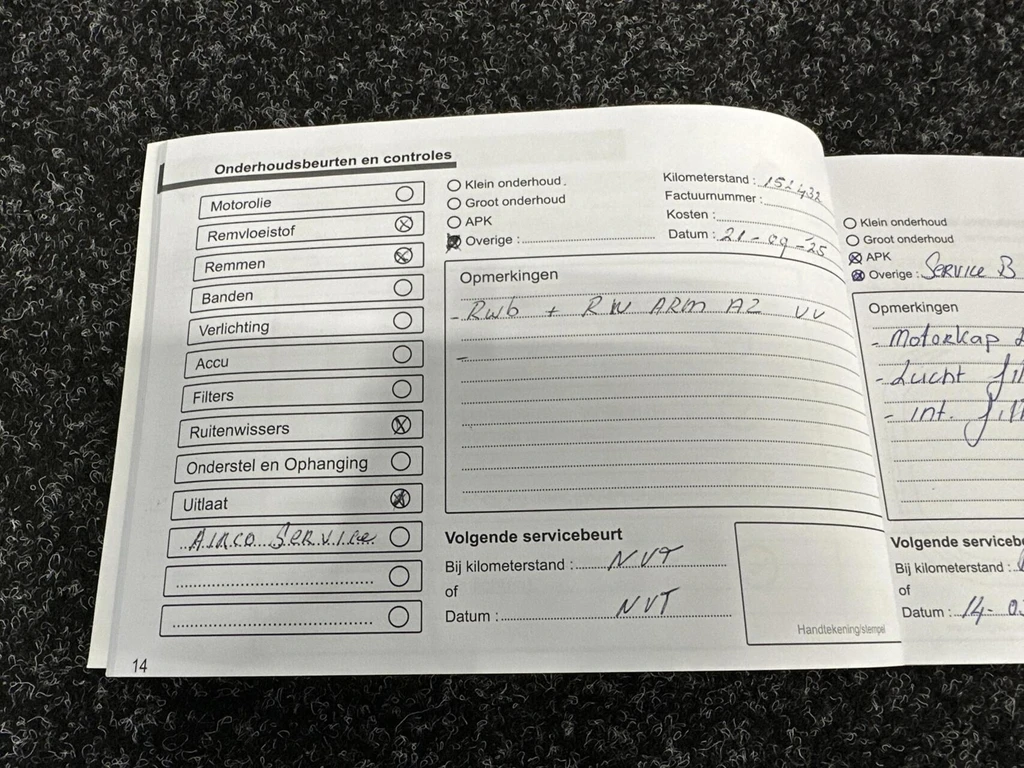 Onderhoudsbeurten en controles
Motorolie
Remvloeistof
Remmen
Banden
Verlichting
Accu
Filters
Ruitenwissers
Onderstel en Ophanging
Uitlaat
AIRCO SERVICE
14
Klein onderhoud
Groot onderhoud
APK
Overige :
Kilometerstand : 152432
Factuurnummer :
Kosten :
Datum : 21-09-25
Opmerkingen
- Rwb + RW ARM A2 VV
-
Volgende servicebeurt
Bij kilometerstand : NVT
of
Datum : NVT
Handtekening/stempel
Klein onderhoud
Groot onderhoud
APK
Overige : SERVICE B
Opmerkingen
- Motorkap
- Lucht fil
- int. fil
Volgende servicebe
Bij kilometerstand :
of
Datum : 14-0